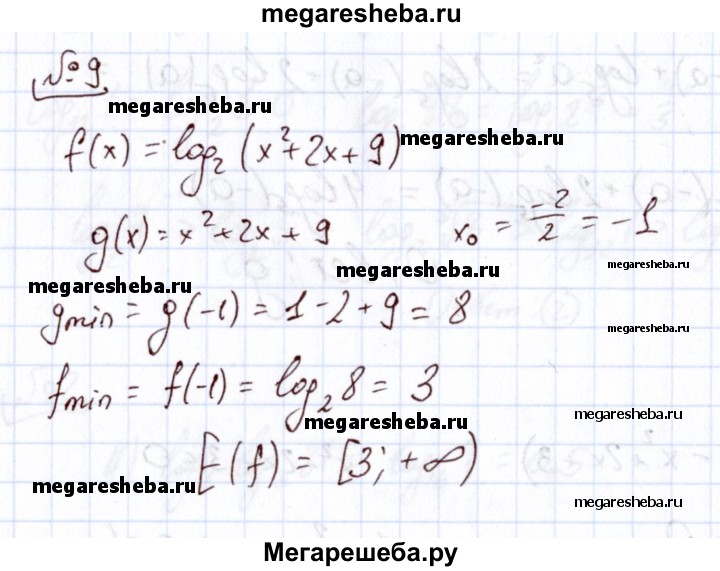 megaresheba.ru
№ 9
megaresheba.ru
f(x) = log₂ (x² + 2x + 9) megaresheba.ru
g(x) = x² + 2x + 9 x₀ = -2/2 = -1
megaresheba.ru megaresheba.ru megaresheba.ru
g min = g(-1) = 1 - 2 + 9 = 8 megaresheba.ru
f min = f(-1) = log₂ 8 = 3
megaresheba.ru megaresheba.ru
E(f) = [3; +∞)
megaresheba.ru megaresheba.ru
Мегарешеба.ру